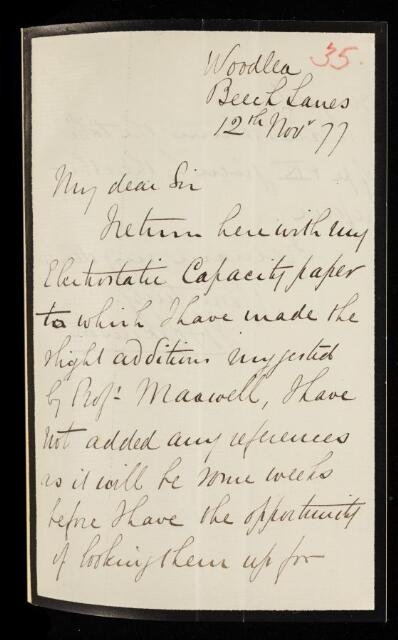 35.
Woodlea
Beech Lanes
12th Novr 77
My dear Sir
I return herewith my
Electrostatic Capacity paper
to which I have made the
slight additions suggested
by Profr. Maxwell, I have
not added any references
as it will be some weeks
before I have the opportunity
of looking them up for